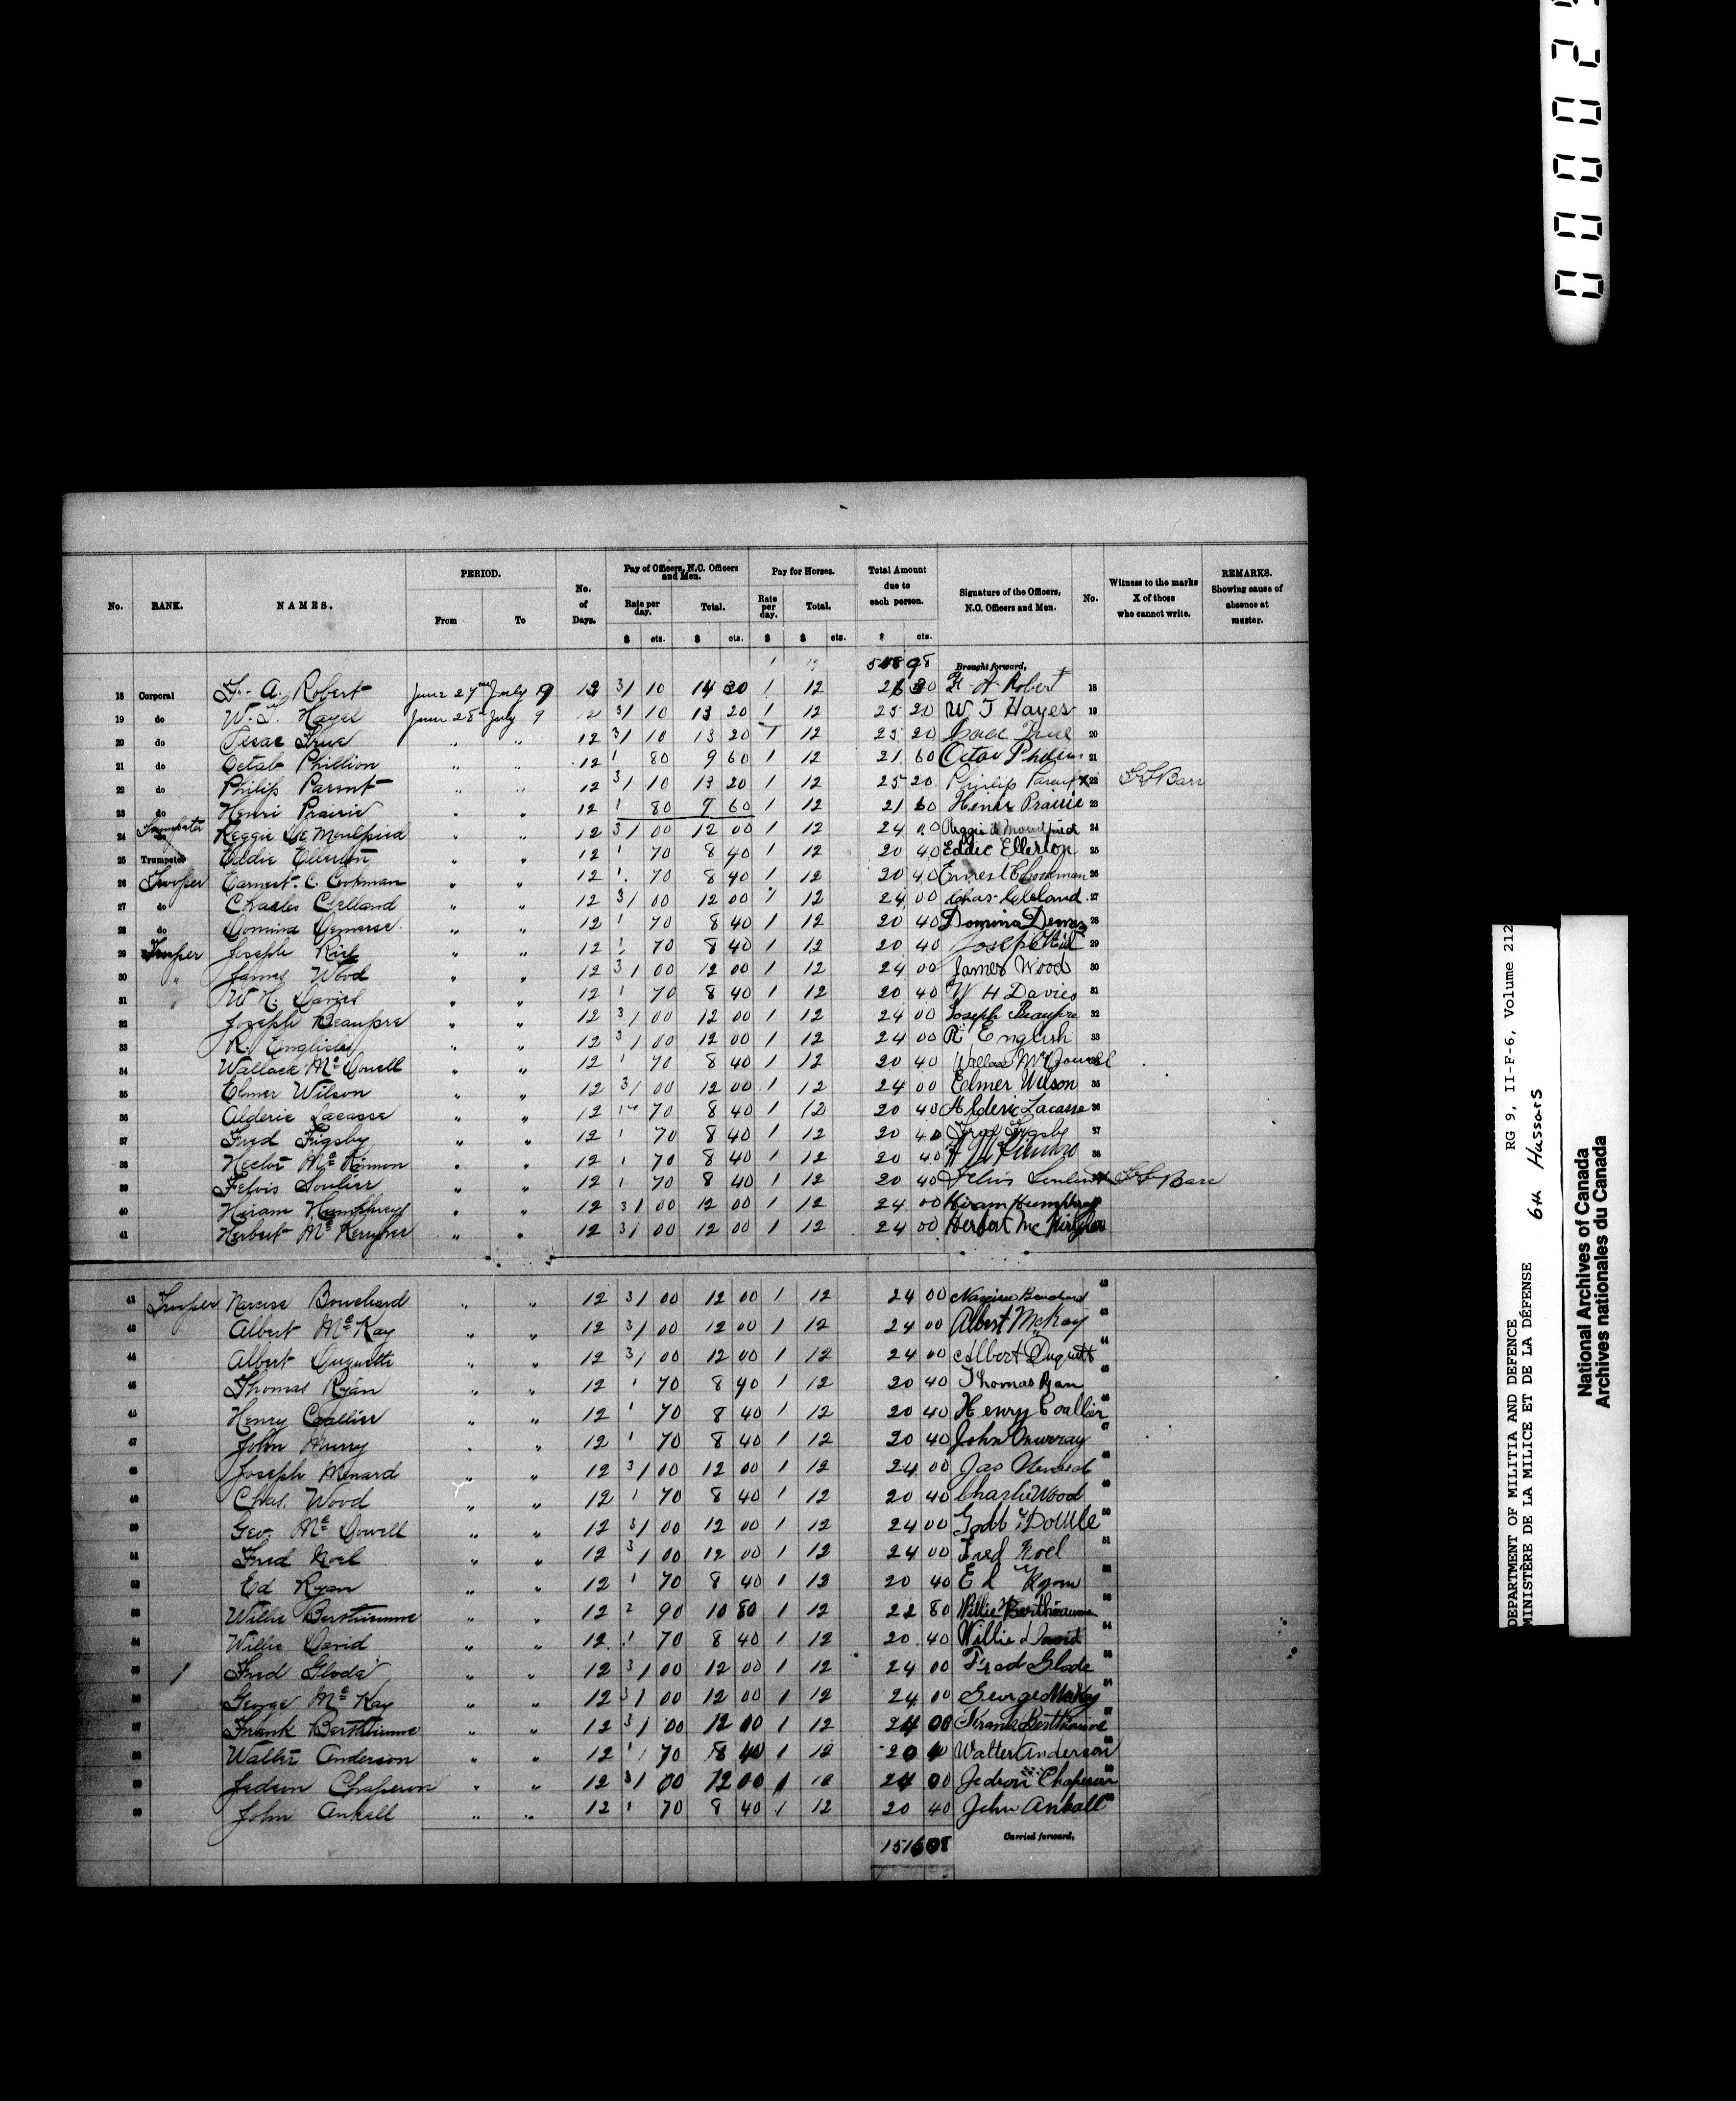 No. RANK. NAMES. PERIOD. From To No. of Days. Pay of Officers, N.C. Officers and Men. Rate per day. $ cts. Total. $ cts. Pay for Horses. Rate per day. $ Total. $ cts. Total Amount due to each person. $ cts. Signature of the Officers, N.C. Officers and Men. No. Witness to the marks X of those who cannot write. REMARKS. Showing cause of absence at muster.
Brought forward,
18 Corporal A. Robert June 27 July 9 14 30 1 12 A. Robert 18
19 do W. T. Hayes June 28 July 9 12 3/1 10 13 20 1 12 25 20 W T Hayes 19
20 do Isaac True " " 12 3/1 10 13 20 1 12 25 20 Isaac True 20
21 do Octab Phillion " " 12 1 80 9 60 1 12 21 60 Octav 21
22 do Philip Parent " " 12 3/1 10 13 20 1 12 25 20 Philip Parent X 22 Barr
23 do Henri Prairie " " 12 1 80 9 60 1 12 21 60 Henri Prairie 23
24 Reggie De Moulpied " " 12 3/1 00 12 00 1 12 24 00 Reggie de Moulpied 24
25 Trumpeter Eddie Ellerton " " 12 1 70 8 40 1 12 20 40 Eddie Ellerton 25
26 Trooper Earnest C. Cookman " " 12 1 70 8 40 1 12 20 40 Ernest C Cookman 26
27 do Charles Clelland " " 12 3/1 00 12 00 1 12 24 00 Chas. Cleland 27
28 do Domina Demerse " " 12 1 70 8 40 1 12 20 40 Domina Demers 28
29 Trooper Joseph Riel " " 12 1 70 8 40 1 12 20 40 Joseph Riel 29
30 " James Wood " " 12 3/1 00 12 00 1 12 24 00 James Wood 30
31 W. H. Davies " " 12 1 70 8 40 1 12 20 40 W H Davies 31
32 Joseph Beaupre " " 12 3/1 00 12 00 1 12 24 00 Joseph Beaupre 32
33 R. English " " 12 3/1 00 12 00 1 12 24 00 R English 33
34 Wallace McDowell " " 12 1 70 8 40 1 12 20 40 Wallace McDowell
35 Elmer Wilson " " 12 3/1 00 12 00 1 12 24 00 Elmer Wilson 35
36 Alderic Lacasse " " 12 1 70 8 40 1 12 20 40 Alderic Lacasse 36
37 Fred Figsby " " 12 1 70 8 40 1 12 20 40 Fred Figsby 37
38 Hector McKinnon " " 12 1 70 8 40 1 12 20 40 38
39 Felvis Soulier " " 12 1 70 8 40 1 12 20 40 Barr
40 Hiram Humphrey " " 12 3/1 00 12 00 1 12 24 00 Hiram Humphrey
41 Herbert " " 12 3/1 00 12 00 1 12 24 00 Herbert
42 Trooper Narcise Bouchard " " 12 3/1 00 12 00 1 12 24 00 Bouchard 42
43 Albert McKay " " 12 3/1 00 12 00 1 12 24 00 Albert McKay 43
44 Albert Duquette " " 12 3/1 00 12 00 1 12 24 00 Albert Duquette 44
45 Thomas Ryan " " 12 1 70 8 40 1 12 20 40 Thomas Ryan 45
46 Henry Coallier " " 12 1 70 8 40 1 12 20 40 Henry Coallier 46
47 John Murry " " 12 1 70 8 40 1 12 20 40 John Murray 47
48 Joseph Menard " " 12 3/1 00 12 00 1 12 24 00 Jos Menard 48
49 Chas. Wood " " 12 1 70 8 40 1 12 20 40 Charlie Wood 49
50 Geo. McDowell " " 12 3/1 00 12 00 1 12 24 00 50
51 Fred Noel " " 12 3/1 00 12 00 1 12 24 00 Fred Noel 51
52 Ed Ryan " " 12 1 70 8 40 1 12 20 40 Ed Ryan 52
53 Willie Berthiaume " " 12 2 90 10 80 1 12 22 80 Willie Berthiaume 53
54 Willie David " " 12 1 70 8 40 1 12 20 40 Willie David 54
55 Fred Glode " " 12 3/1 00 12 00 1 12 24 00 Fred Glode 55
56 George McKay " " 12 3/1 00 12 00 1 12 24 00 George McKay
57 Frank Berthiaume " " 12 3/1 00 12 00 1 12 24 00 Frank Berthiaume
58 Walter Anderson " " 12 1 70 8 40 1 12 20 40 Walter Anderson
59 Jedeon Chaperon " " 12 3/1 00 12 00 1 12 24 00 Jedeon Chaperon
60 John Ankall " " 12 1 70 8 40 1 12 20 40 John Ankall
1516 08 Carried forward,
DEPARTMENT OF MILITIA AND DEFENCE RG 9, II-F-6, Volume 212
MINISTÈRE DE LA MILICE ET DE LA DÉFENSE 6th Hussars
National Archives of Canada
Archives nationales du Canada